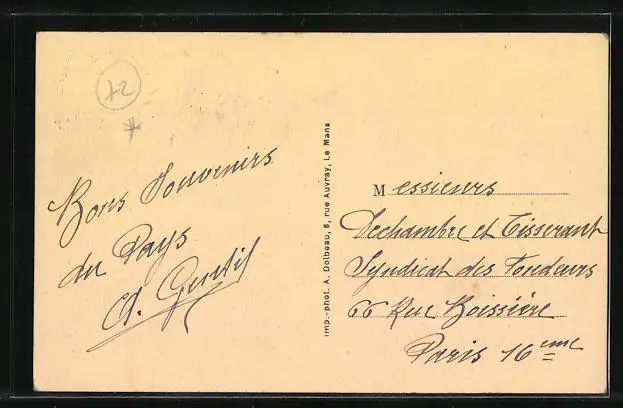 72
*
Bons Souvenirs
du Pays
A. Gentil
Imp.-phot. A. Dolbeau, 5, rue Auvray, Le Mans
Messieurs
Dechambre et Tisserant
Syndicat des Fondeurs
66 Rue Boissière
Paris 16eme